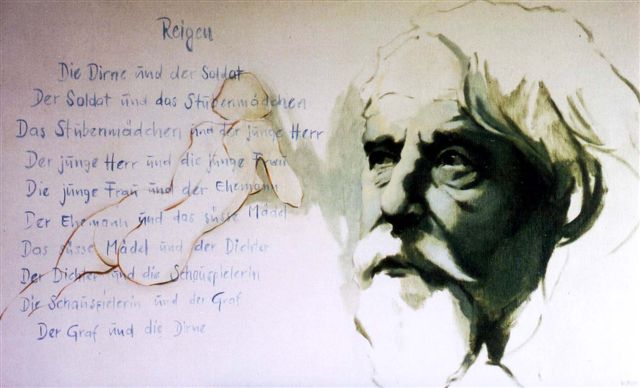 Reigen
Die Dirne und der Soldat
Der Soldat und das Stubenmädchen
Das Stubenmädchen und der junge Herr
Der junge Herr und die junge Frau
Die junge Frau und der Ehemann
Der Ehemann und das süsse Mädel
Das süsse Mädel und der Dichter
Der Dichter und die Schauspielerin
Die Schauspielerin und der Graf
Der Graf und die Dirne